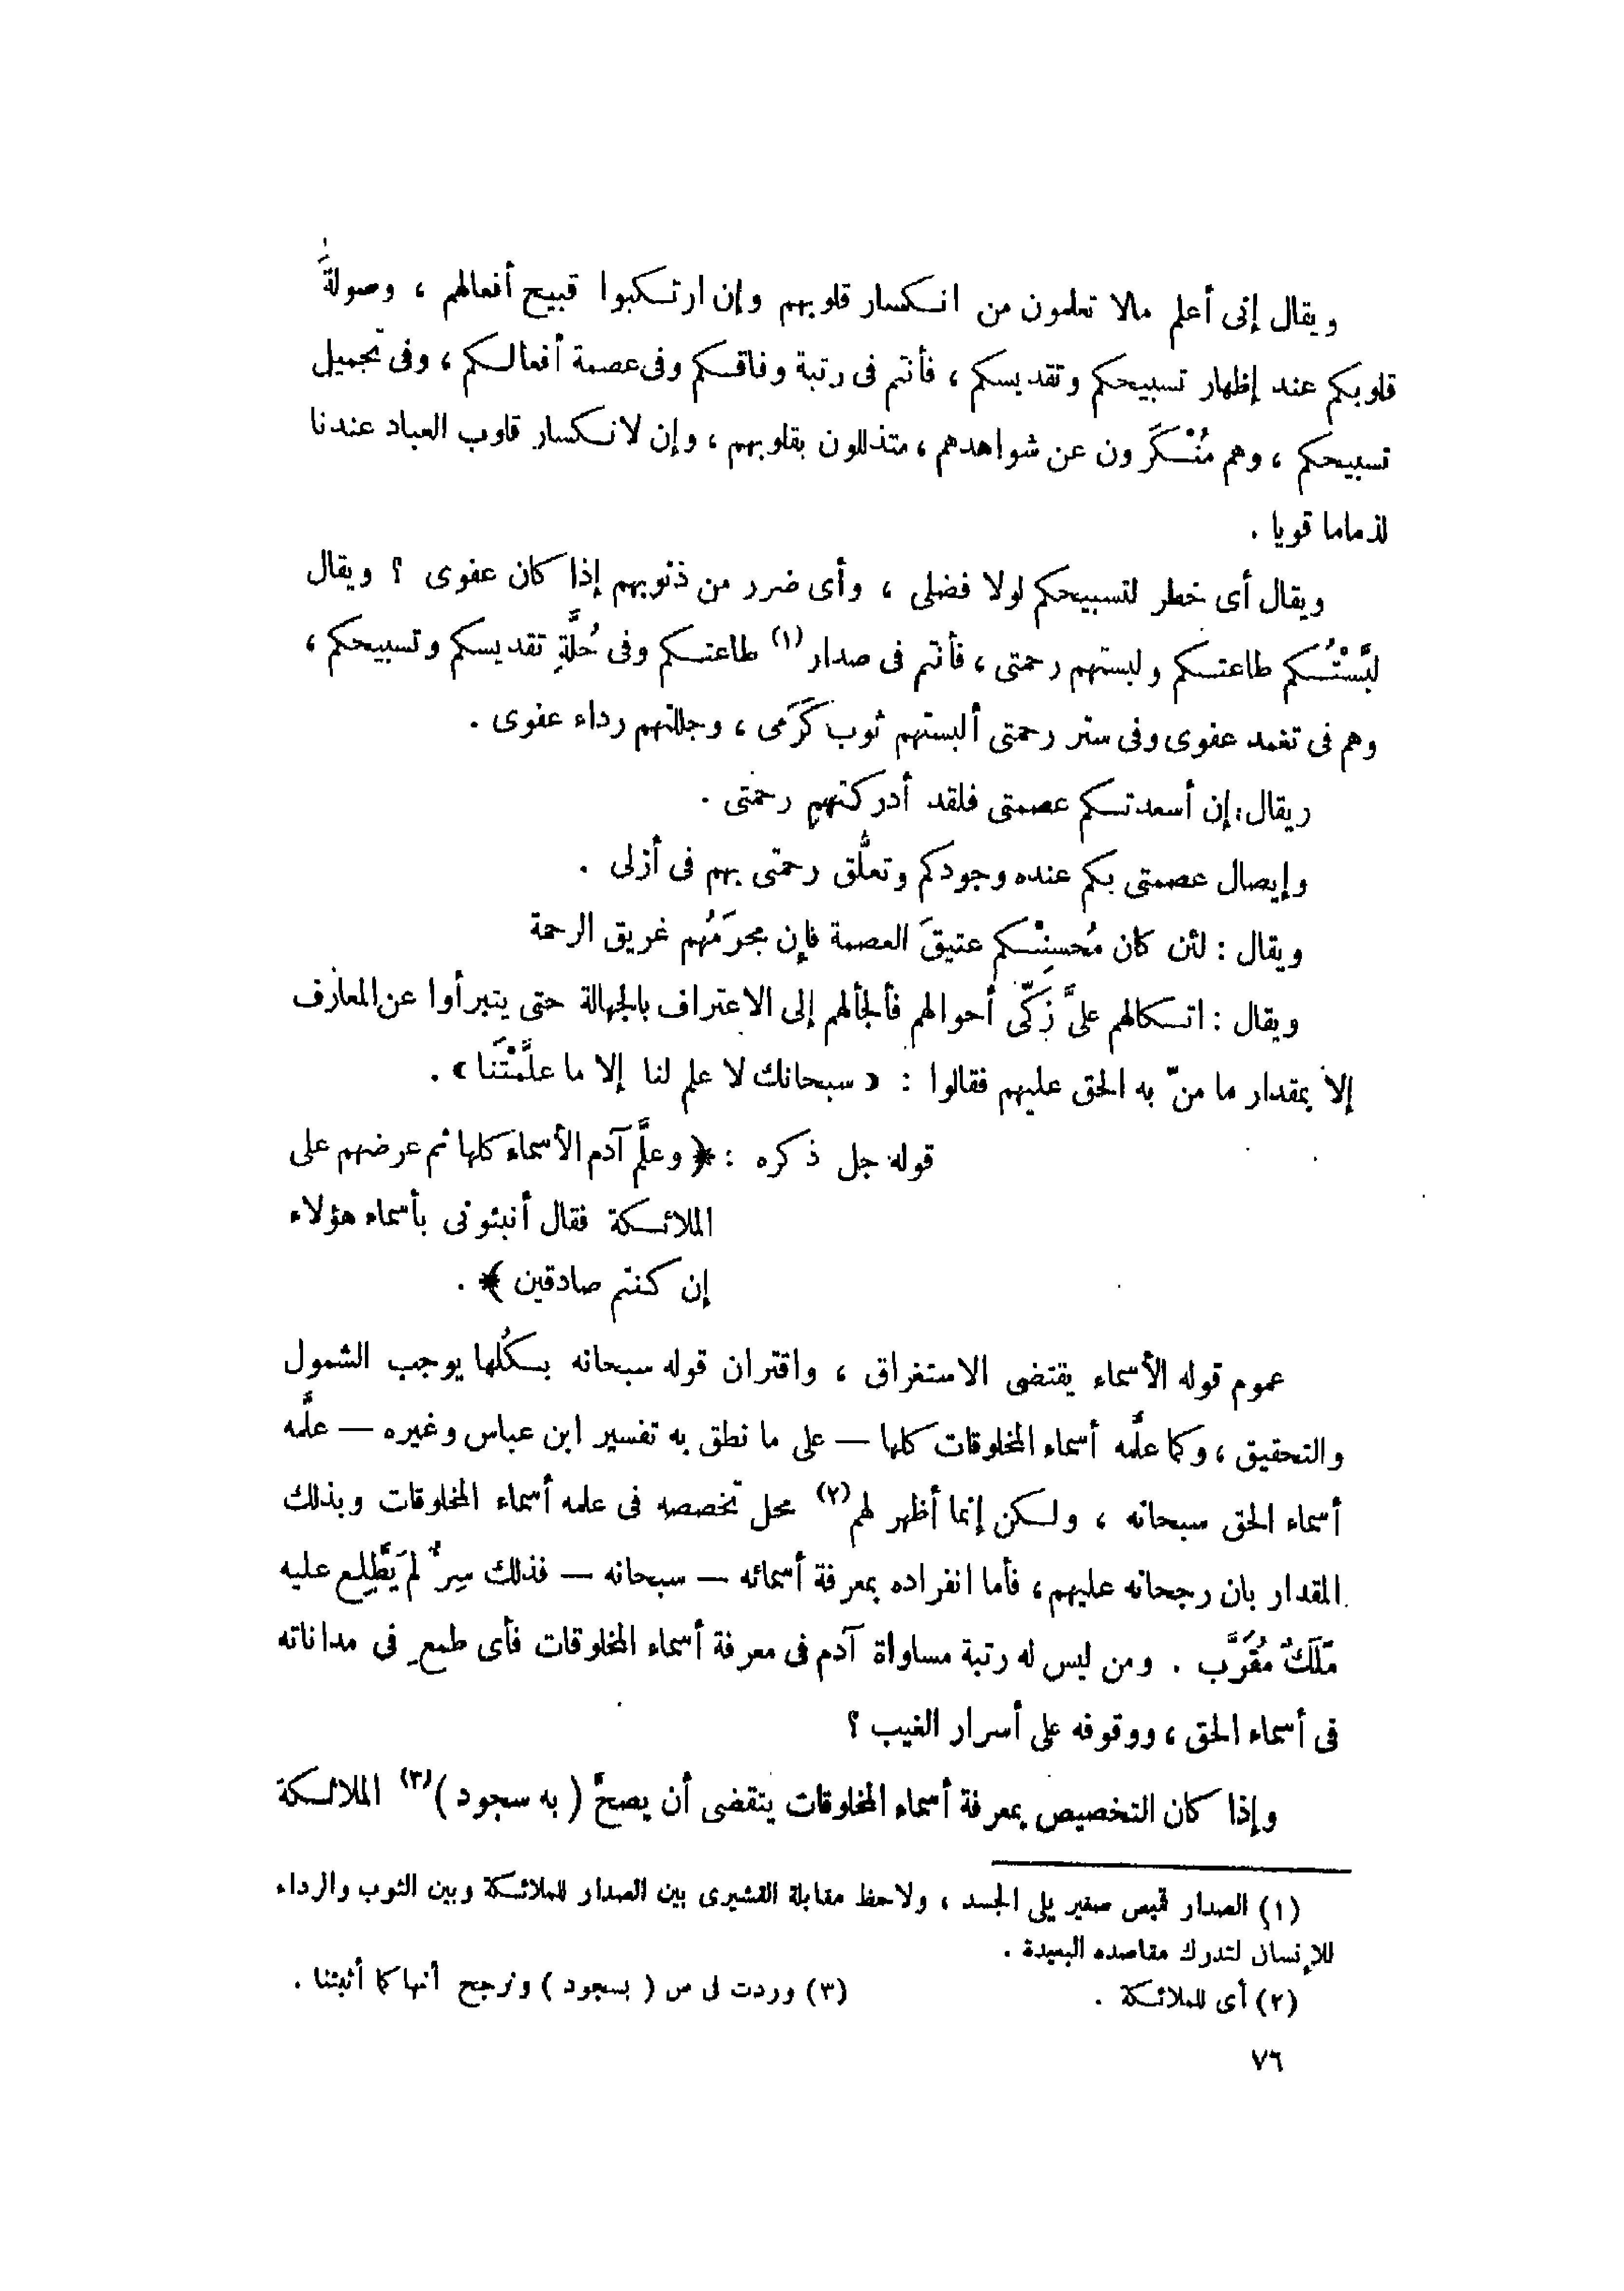 ويقال إنى أعلم مالا تعلمون من انكسار قلوبهم وإن ارتكبوا قبيح أفعالهم ، وصولةَ
قلوبكم عند إظهار تسبيحكم وتقديسكم ، فأنتم فى رتبة وفاقكم وفى عصمة أفعالكم ، وفى تجميل
تسبيحكم ، وهم مُنْكَرون عن شواهدهم ، متذللون بقلوبهم ، وإن لانكسار قلوب العباد عندنا
لذماما قويا .
ويقال أى خطر لتسبيحكم لولا فضلى ، وأى ضرر من ذنوبهم إذا كان عفوى ؟ ويقال
لبَّسْتُكم طاعتكم ولبستهم رحمتى ، فأنتم فى صدار (١) طاعتكم وفى حُلَّةِ تقديسكم وتسبيحكم ،
وهم فى تغمد عفوى وفى ستر رحمتى ألبستهم ثوب كَرَمى ، وجللتهم رداء عفوى .
ويقال : إن أسعدتكم عصمتى فلقد أدركتهم رحمتى .
وإيصال عصمتى بكم عنده وجودكم وتعلُّق رحمتى بهم فى أزلى .
ويقال : لئن كان مُحسِنْكم عتيقَ العصمة فإن مجرَمُهم غريق الرحمة
ويقال : اتكالهم علىَّ زَكَّى أحوالهم فألجألهم إلى الاعتراف بالجهالة حتى يتبرأوا عن المعارف
إلا بمقدار ما منّ به الحق عليهم فقالوا : « سبحانك لا علم لنا إلا ما علَّمْتَنا » .
قوله جل ذكره : ﴿ وعلَّم آدم الأسماء كلها ثم عرضهم على
الملائكة فقال أنبئونى بأسماء هؤلاء
إن كنتم صادقين ﴾ .
عموم قوله الأسماء يقتضى الاستغراق ، واقتران قوله سبحانه بكُلها يوجب الشمول
والتحقيق ، وكما علَّمه أسماء المخلوقات كلها — على ما نطق به تفسير ابن عباس وغيره — علَّمه
أسماء الحق سبحانه ، ولكن إنما أظهر لهم (٢) محل تخصصه فى علمه أسماء المخلوقات وبذلك
المقدار بان رجحانه عليهم ، فأما انفراده بمعرفة أسمائه — سبحانه — فذلك سِرٌ لم يَطَّلِع عليه
مَلَكٌ مُقَرَّب . ومن ليس له رتبة مساواة آدم فى معرفة أسماء المخلوقات فأى طمعٍ فى مداناته
فى أسماء الحق ، ووقوفه على أسرار الغيب ؟
وإذا كان التخصيص بمعرفة أسماء المخلوقات يتقضى أن يصحَّ ( به سجود ) (٣) الملائكة
(١) الصدار قميص صغير يلى الجسد ، ولاحظ مقابلة القشيرى بين الصدار للملائكة وبين الثوب والرداء
للإنسان لتدرك مقاصده البعيدة .
(٢) أى للملائكة .
(٣) وردت فى س ( بسجود ) ونرجح أنها كما أثبتنا .
٧٦